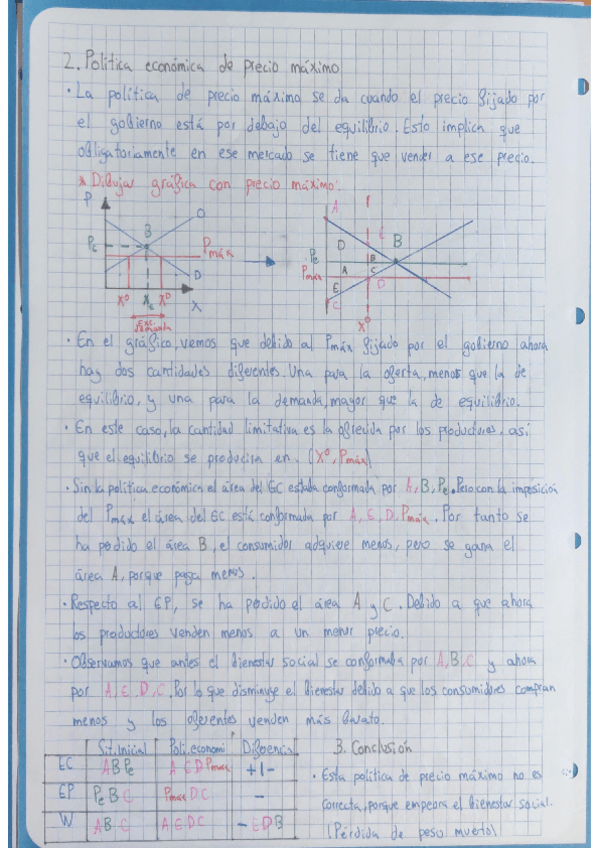 2. Política económica de precio máximo
· La política de precio máximo se da cuando el precio fijado por
el gobierno está por debajo del equilibrio. Esto implica que
obligatoriamente en ese mercado se tiene que vender a ese precio.
* Dibujar gráfica con precio máximo:
P
O
B
PE
Pmáx
D
X^O
XE
X^D
X
Exc
demanda
A
D
E
B
PE
B
A
C
Pmáx
E
D
C
X^O
· En el gráfico, vemos que debido al Pmáx fijado por el gobierno ahora
hay dos cantidades diferentes. Una para la oferta, menos que la de
equilibrio, y una para la demanda, mayor que la de equilibrio.
· En este caso, la cantidad limitativa es la ofrecida por los productores, así
que el equilibrio se producira en. (X^O, Pmáx)
· Sin la política económica el área del EC estaba conformada por A, B, PE. Pero con la imposición
del Pmáx el área del EC está conformada por A, E, D, Pmáx. Por tanto se
ha perdido el área B, el consumidor adquiere menos, pero se gana el
área A, porque paga menos.
· Respecto al EP, se ha perdido el área A y C. Debido a que ahora
los productores venden menos a un menor precio.
· Observamos que antes el bienestar social se conformaba por A, B, C y ahora
por A, E, D, C. Por lo que disminuye el bienestar debido a que los consumidores compran
menos y los oferentes venden más barato.
Sit. Inicial Poli. economi Diferencia
EC ABPE AEDPmáx +/-
EP PEBC PmáxDC -
W ABC AEDC - EDB
3. Conclusión
· Esta política de precio máximo no es
correcta, porque empeora el bienestar social.
(Pérdida de peso muerto)